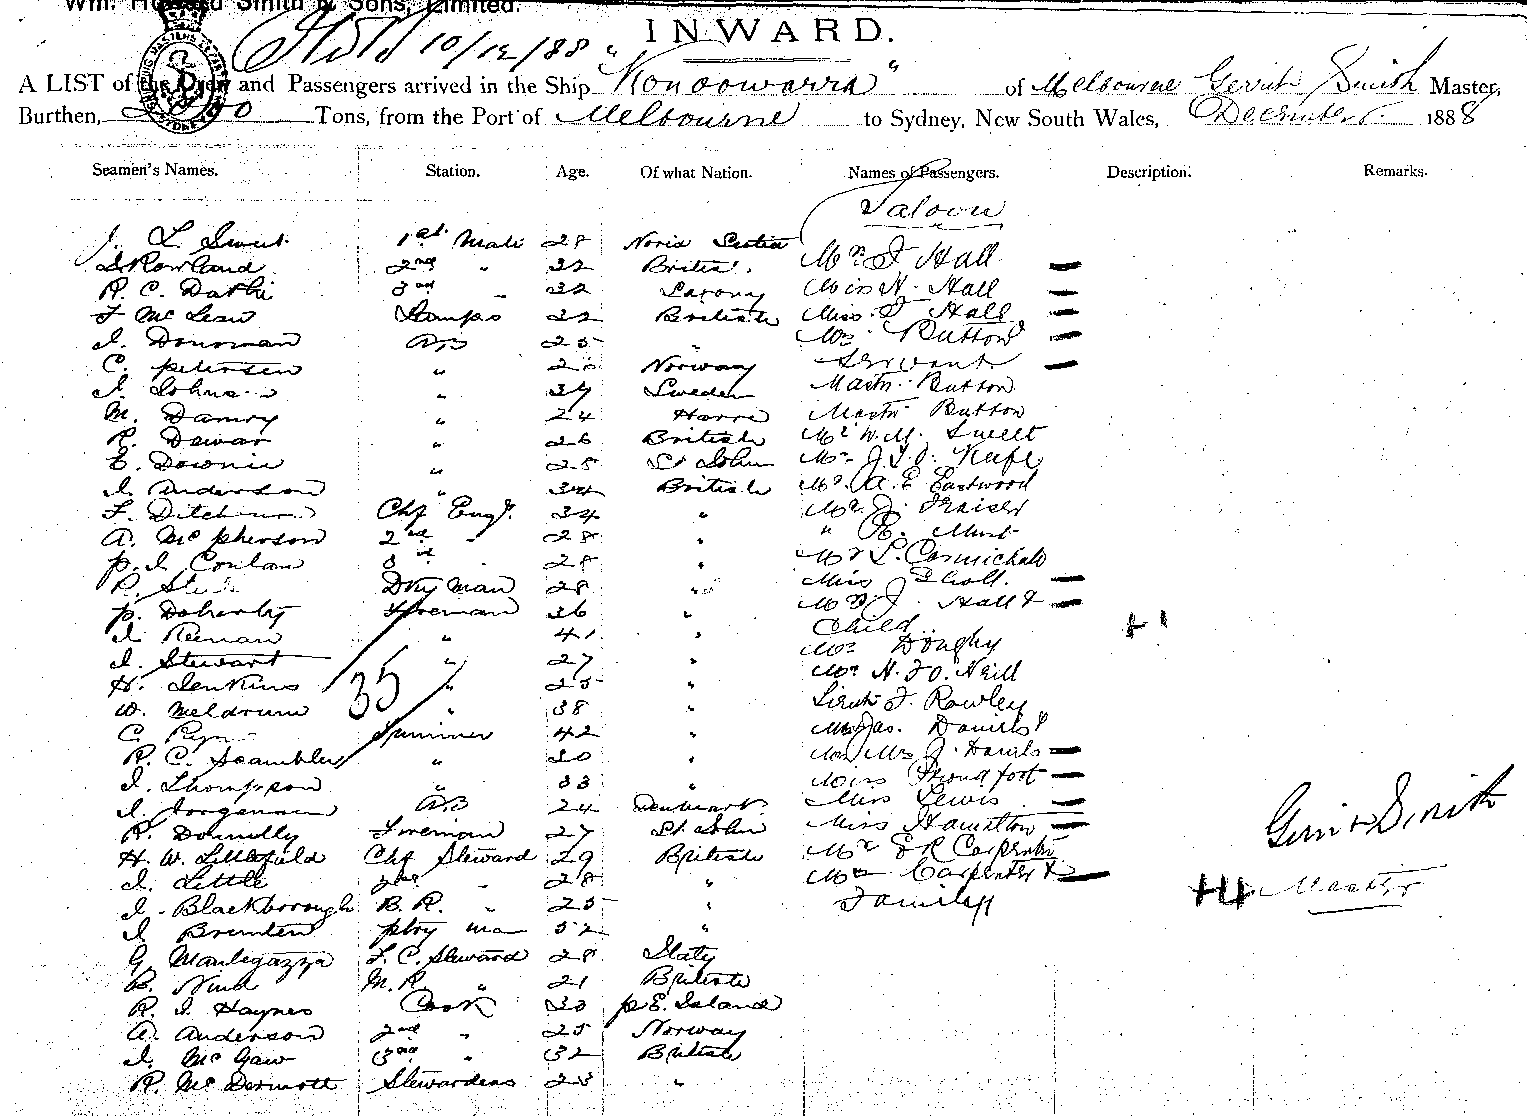 Wm. Howard Smith & Sons, Limited.
INWARD.
10/12/88
A LIST of the Crew and Passengers arrived in the Ship "Konoowarra" of Melbourne Gerrit Smith Master,
Burthen, Tons, from the Port of Melbourne to Sydney, New South Wales, December 1888
Seamen's Names. Station. Age. Of what Nation. Names of Passengers. Description. Remarks.
Saloon
J. L. Sweet 1st Mate 28 Nova Scotia
Rowland 2nd " 32 British Mrs J Hall
R. C. 3rd " 32 Saxony Miss H. Hall
F McLean Lamps 32 British Miss J Hall
J. Donovan AB 25 " Mrs Button
C. Petersen " Norway Servant
J. " 34 Sweden Mastr Button
M. " 24 Mastr Button
R. Dewar " 26 British Mr W. M. Sweet
E. Downie " 28 St John Mr J. T. O. Keefe
J. Anderson " 34 British Mr A. E. Eastwood
F. Chf Engr. 34 " Mr J. Fraiser
A. McPherson 2nd " 28 " " R.
P. J. Conlan 3rd 28 " Mr L. Carmichael
R. Dky man 28 " Miss
P. Doherty Fireman 36 " Mrs J. Hall &
J. Keenan " 41 " Child +1
J. Stewart " 27 " Mr
H. Jenkins " 25 " Mr H. J O. Neill
35
W. Meldrum " 38 " Lieut J. Rowley
C. Trimmer 42 " Mr Jas. Daniels &
R. C. Scambler " 30 " Mrs J. Daniels
J. Thompson " 33 " Miss Proudfoot
J. Jorgensen AB 24 Denmark Miss Lewis
R. Donnelly Fireman 27 St John Miss Hamilton
H. W. Littlefield Chf Steward 29 British Mr E R Carpenter
J. Little 2nd " 28 " Mrs Carpenter &
J. Blackborough B. R. " 25 " Family +4
Gerrit Smith
Master
J 32 "
G. Mantegazza F. C. Steward 28 Italy
B. M. R. " 21 British
R. J. Haynes Cook 30 P. E. Island
A. Anderson 2nd " 25 Norway
J. McGaw 3rd " 32 British
R. McDermott Stewardess 23 "